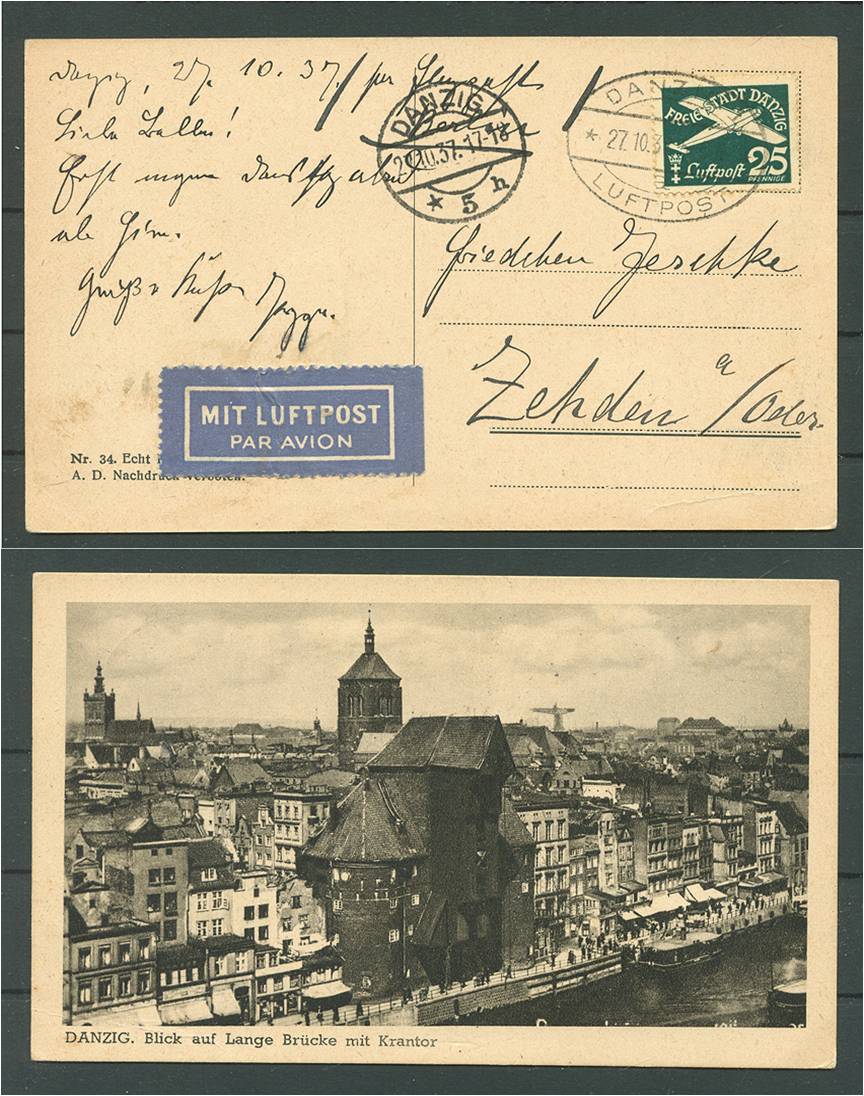 Danzig, 27. 10. 37. per Flugpost
Berlin
Liebe Balla!
Erst morgen
Gruß u Kuß
DANZIG
27.10.37. 17-18
* 5 h
DANZIG
* 27.10.3
LUFTPOST
FREIE STADT DANZIG
Luftpost 25
PFENNIGE
Friedchen Jeschke
Zehden a/Oder.
MIT LUFTPOST
PAR AVION
Nr. 34. Echt
A. D. Nachdruck verboten.
DANZIG. Blick auf Lange Brücke mit Krantor